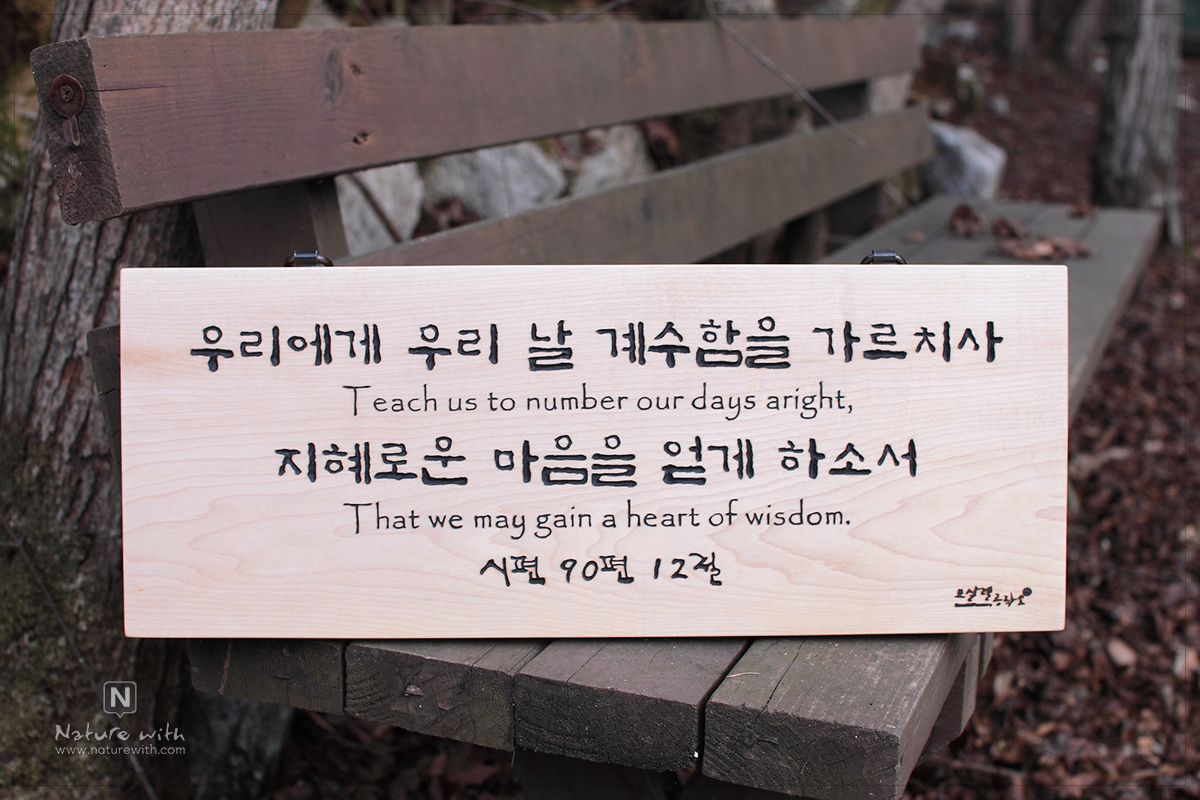 우리에게 우리 날 계수함을 가르치사
Teach us to number our days aright,
지혜로운 마음을 얻게 하소서
That we may gain a heart of wisdom.
시편 90편 12절
브살렐공작소
N
Nature with
www.naturewith.com